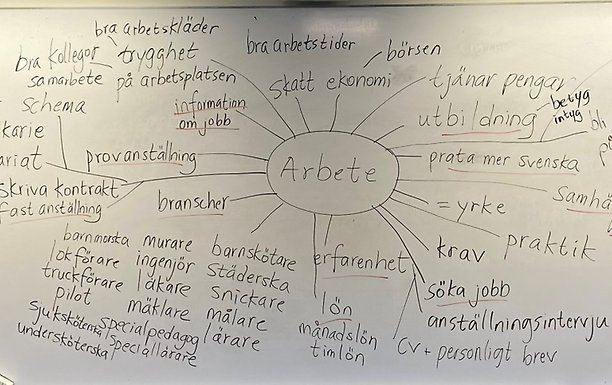 bra arbetskläder
bra kollegor
trygghet
samarbete
på arbetsplatsen
bra arbetstider
börsen
skatt
ekonomi
tjänar pengar
schema
information
om jobb
utbildning
betyg
intyg
bli
karie
ariat
provanställning
Arbete
prata mer svenska
skriva kontrakt
fast anställning
branscher
= yrke
Samhä
krav
praktik
erfarenhet
söka jobb
anställningsintervju
cv + personligt brev
lön
månadslön
timlön
barnmorska
lokförare
truckförare
pilot
sjuksköterska
undersköterska
murare
ingenjör
läkare
mäklare
specialpedagog
speciallärare
barnskötare
städerska
snickare
målare
lärare